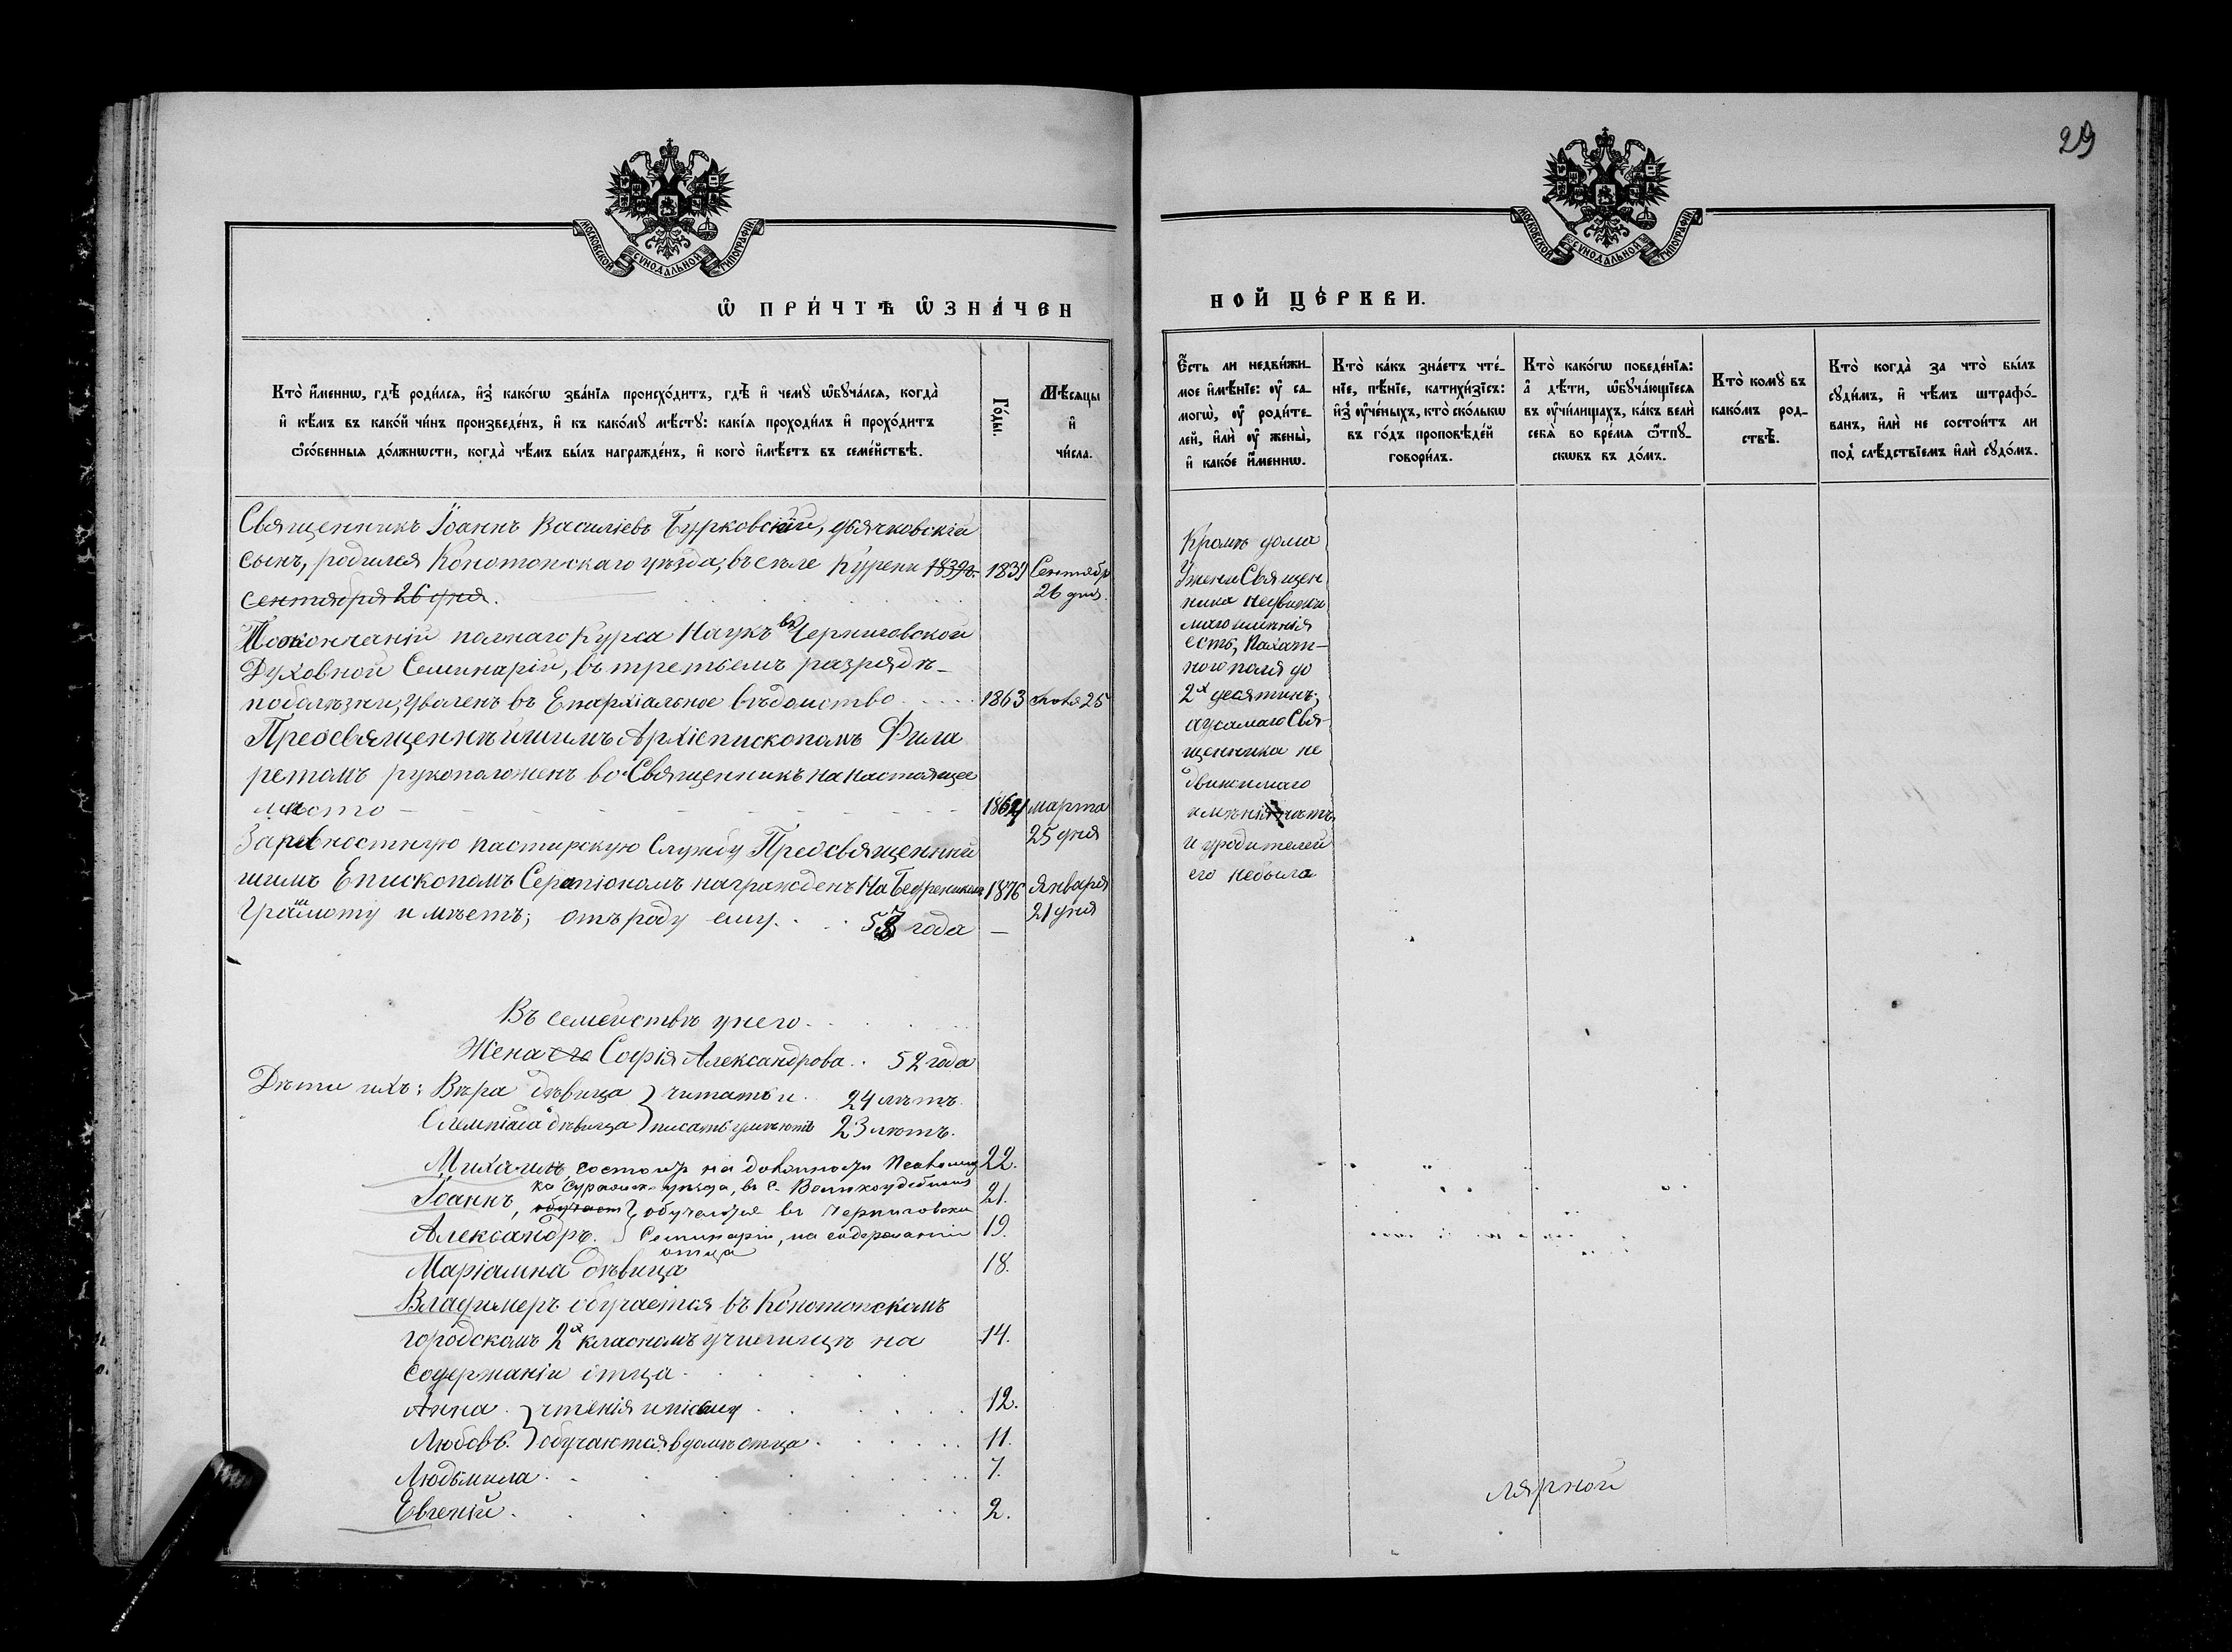 29
МОСКОВСКОЙ СѴНОДАЛЬНОЙ ТИПОГРАФІИ
МОСКОВСКОЙ СѴНОДАЛЬНОЙ ТИПОГРАФІИ
Ѡ ПРИ́ЧТѢ ѠЗНА́ЧЕН
НОЙ ЦЕ́РКВИ.
Кто̀ и҆́менно, гдѣ̀ роди́лся, и҆з̾ како́гѡ зва́нїѧ происхо́дитъ, гдѣ̀ и҆ чемꙋ̀ ѡ҆бꙋча́лся, когда̀
и҆ кѣ́мъ въ како́й чи́нъ произведе́нъ, и҆ къ како́мꙋ мѣ́стꙋ: какі̑ѧ проходи́лъ и҆ прохо́дитъ
ѻ҆со́бенныѧ до́лжнѡсти, когда̀ чѣ́мъ бы́лъ награжде́нъ, и҆ кого̀ и҆мѣ́етъ въ семе́йствѣ.
Го́ды.
Мѣ́сяцы
и҆
чи́сла.
Священникъ Іоаннъ Василіевъ Бурковскій, дьячковскій
сынъ, родился Конотопскаго уѣзда, въ селе Курени 1839г.
1839 Сентябр
Сентября 26 дня.
26 дня.
По окончаніи полнаго Курса Наукъ въ Черниговской
Духовной Семинаріи, въ третьемъ разрядѣ
по болѣзни, уволенъ въ Епархіальное вѣдомство
1863 25
Преосвященнѣйшимъ Архіепископомъ Фила
ретомъ рукоположенъ во Священникъ на настоящее
мѣсто
1864 марта
25 дня
За ревностную пастирскую Службу Преосвященнѣй
шимъ Епископомъ Серапіономъ награжденъ Набедреникомъ
1876 Января
21 дня
Грамоту имѣетъ; отъ роду ему. 57 года
Въ семействѣ у него
Жена его Софія Александрова 52 года
Дѣти ихъ: Вѣра дѣвица } читать и 24 лѣтъ
Олемпіада дѣвица } писать умѣютъ 23 лѣтъ.
Михаилъ состоит на должности Псаломщи 22.
ка Суражск. уѣзда, въ с.
Іоаннъ, обучаетс } обучаются въ Черниговской 21.
Александръ. } Семинаріи, на содержаніи 19.
отца
Маріамна дѣвица 18.
Владимеръ обучается въ Конотопскомъ
городскомъ 2х класномъ училищѣ на 14.
содержаніи отца
Анна } чтенія и писму 12.
Любовъ. } обучаются в домѣ отца 11.
Людьмила 7.
Евгеній 2.
Е҆́сть ли недви́жи-
мое и҆мѣ́нїе: ᲂу҆ са-
могѡ̀, ᲂу҆ роди́те-
лей, и҆лѝ ᲂу҆ жены̀,
и҆ како́е и҆́меннѡ.
Кто̀ ка́къ зна́етъ чте́-
нїе, пѣ́нїе, катихи́зїсъ:
и҆з̾ ᲂу҆че́ныхъ, кто̀ ско́лькѡ
въ го́дъ проповѣ́дей
говори́лъ.
Кто̀ како́гѡ поведе́нїѧ:
а҆ дѣ́ти, ѡ҆бꙋча́ющїесѧ
въ ᲂу҆чи́лищахъ, ка́къ велѝ
себѧ̀ во вре́мѧ ѿпꙋ-
скѡвъ въ до́мъ.
Кто̀ комꙋ̀ въ
како́мъ род-
ствѣ̀.
Кто̀ когда̀ за что̀ бы́лъ
сꙋди́мъ, и҆ чѣ́мъ штрафо́-
ванъ, и҆лѝ не состои́тъ ли
под̾ слѣ́дствїемъ и҆лѝ сꙋдо́мъ.
Кромѣ дома
У жени Священ
ника недвижи
маго имѣнія
есть, Пахат-
ного поля до
2х десятинъ;
а у самаго Свя-
щенника не
движимаго
имѣнія нѣтъ
и у родителей
его небыло
лярной